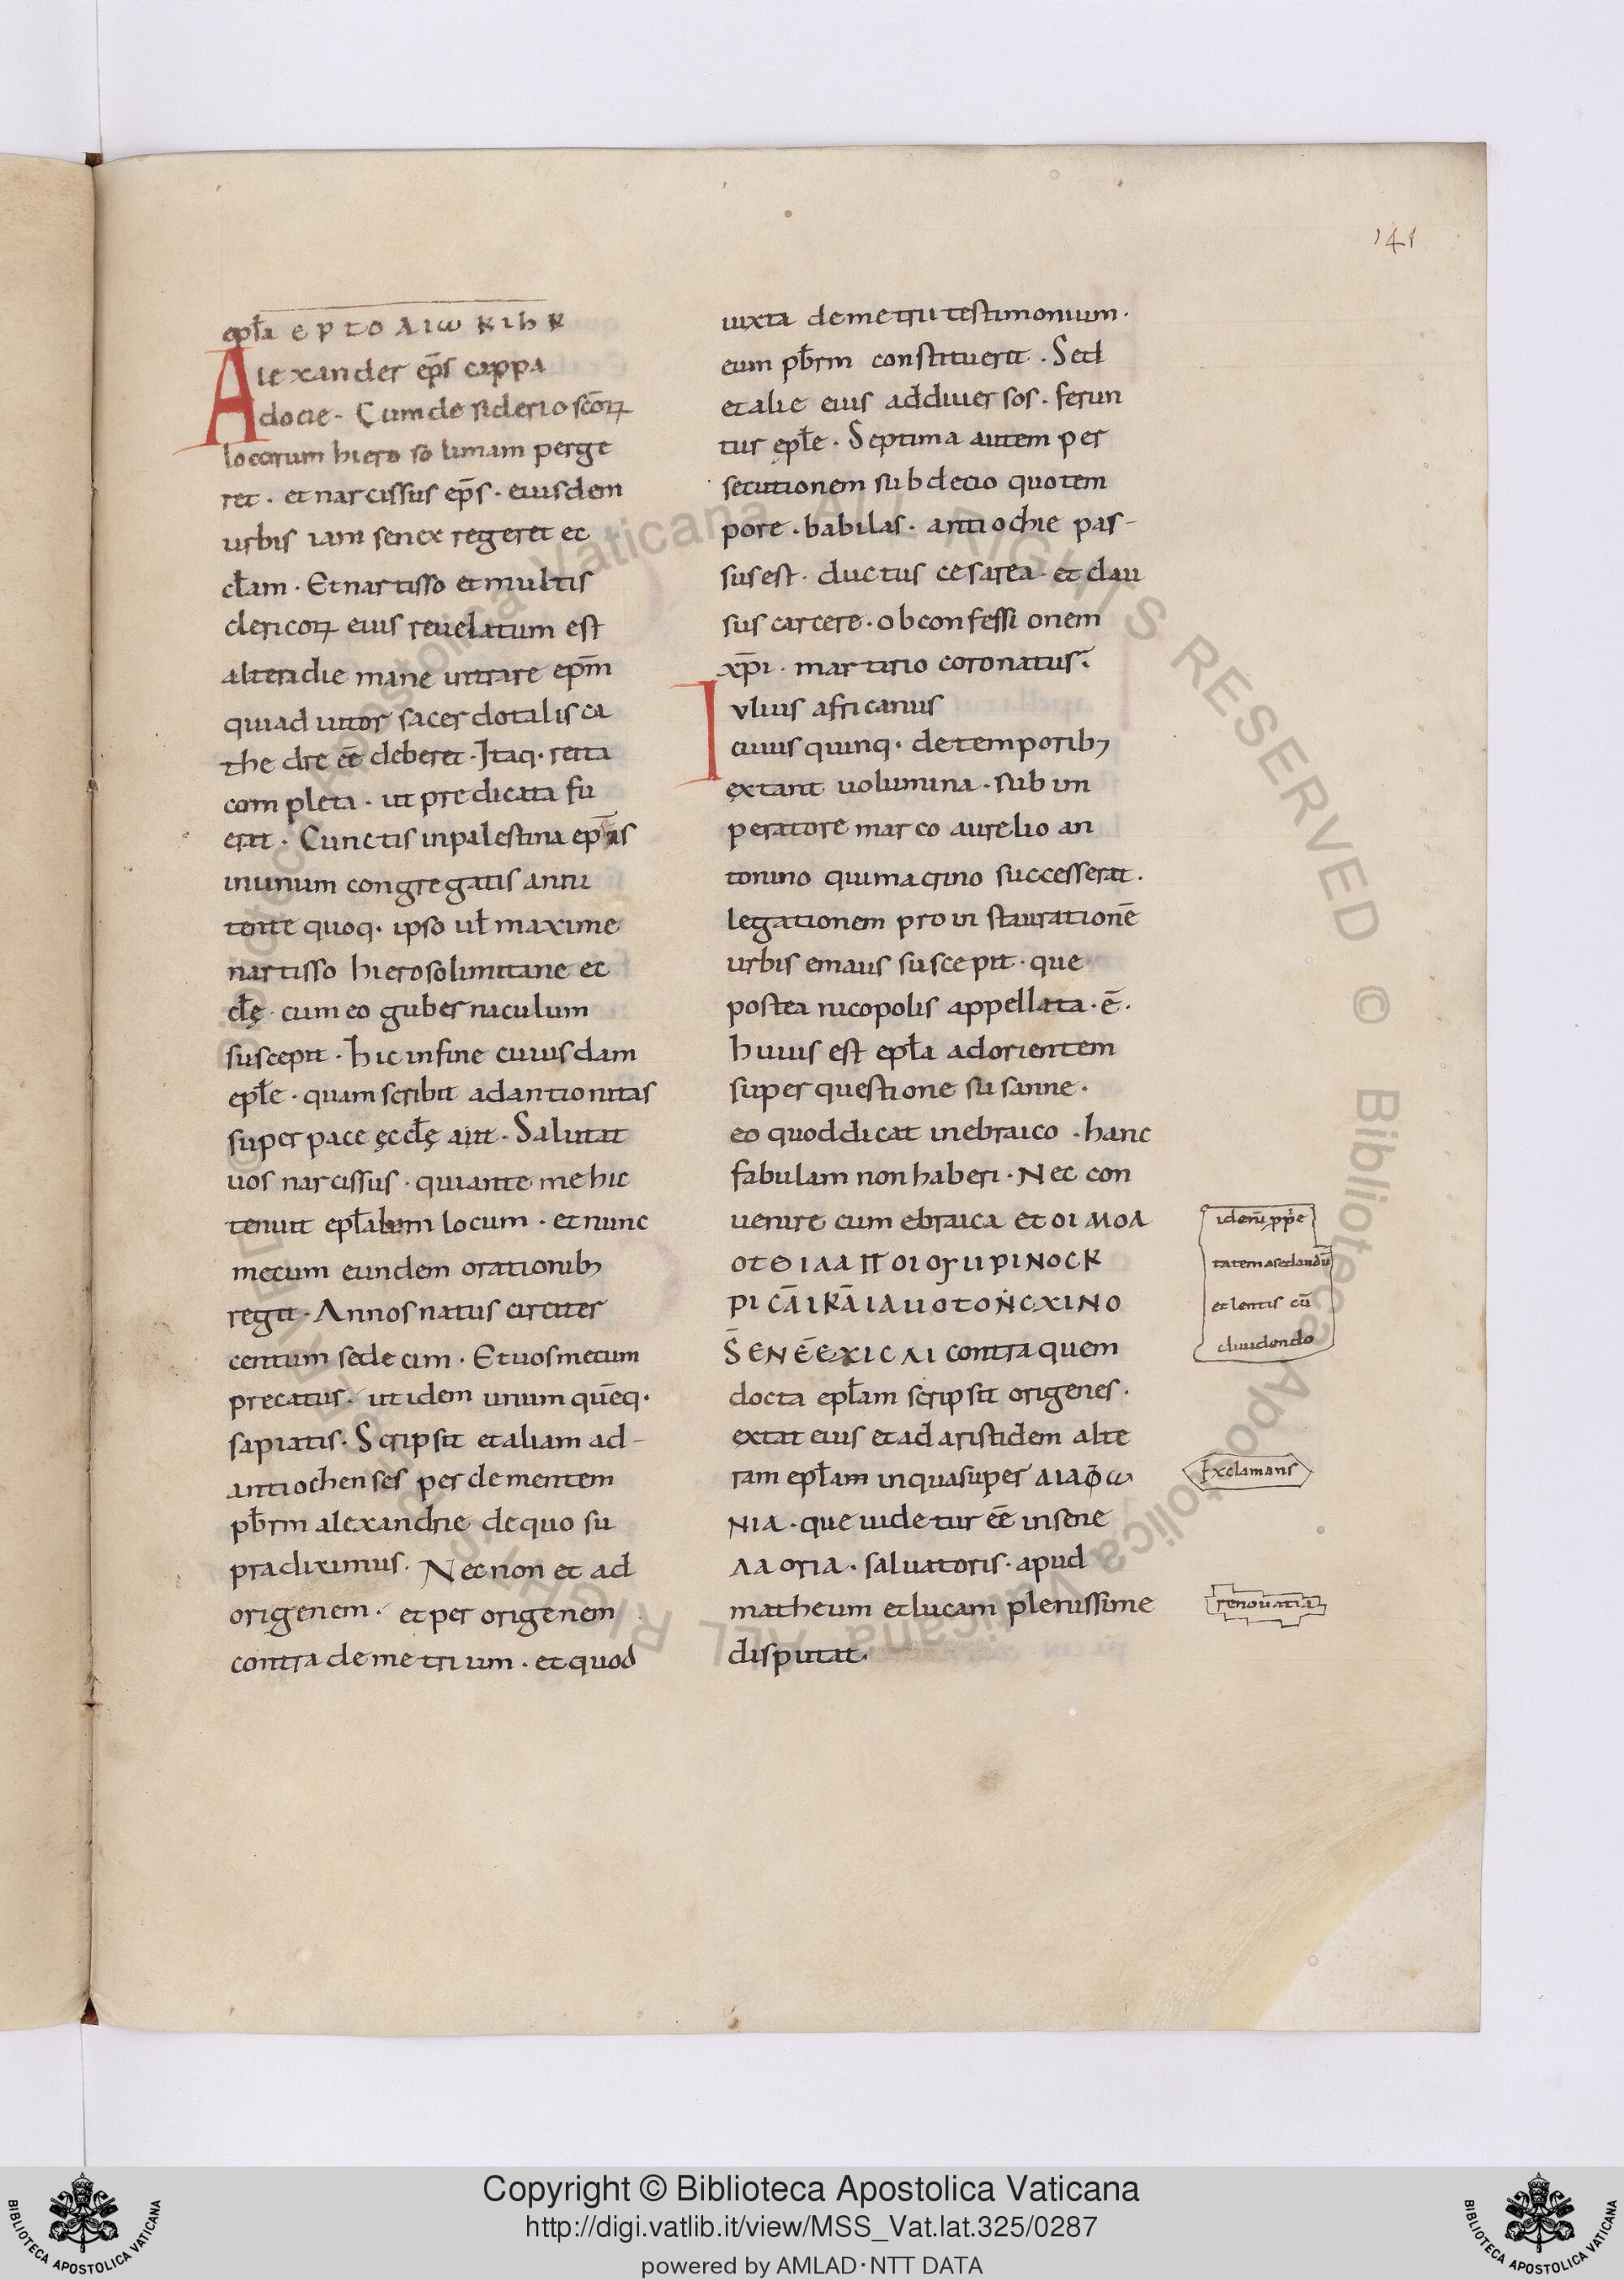 141
epła ερτο λιω κιhκ
Alexander ep̄s cappa
docie. Cum desiderio sc̄oꝝ
locorum hierosolimam perge
ret. et narcissus ep̄s. eiusdem
urbis iam senex regeret ec
cłam. Et nartisso et multis
clericoꝝ eius reuelatum est
altera die mane intrare ep̄m
qui adiutor sacerdotalis ca
thedre ēē deberet. Itaq. reita
completa. ut predicata fu
erat. Cunctis in palestina ep̄is
in unum congregatis anni
tente quoq. ipso uł maxime
nartisso hierosolimitane ec
cłę. cum eo gubernaculum
suscepit. hic in fine cuiusdam
epłe. quam scribit ad antionitas
super pace ęccłę ait. Salutat
uos narcissus. qui ante me hic
tenuit epłalem locum. et nunc
mecum eundem orationib;
regit. Annos natus circiter
centum sedecim. Et uos mecum
precatus. ut idem unum quēq.
sapiatis. Scripsit et aliam ad-
antiochenses per clementem
pb̄rm alexandrie de quo su
pra diximus. Nec non et ad
origenem. et per origenem
contra demetrium. et quod
iuxta demetrii testimonium.
eum pb̄rm constituerit. Sed
et alie eius ad diuersos. ferun
tur epłe. Septima autem per
secutionem sub decio quo tem
pore. babilas. antiochie pas-
sus est. ductus cesarea. et clau
sus carcere. ob confessionem
xp̄i. martirio coronatus.
Iulius africanus
cuius quinq. de temporib;
extant uolumina. sub im
peratore marco aurelio an
tonino qui macrino successerat.
legationem pro instaurationē
urbis emaus suscepit. que
postea nicopolis appellata. ē.
huius est epła ad orientem
super questione susanne.
eo quod dicat in ebraico. hanc
fabulam non haberi. Nec con
uenire cum ebraica et οι ΜΟΛ
ΟΤΘΙΛΑΠΟΙΟΥΙΙΡΙΝΟСΚ
ΡΙ СĀΙΚĀΙΑΙΙΟΤΟΝСΧΙΝΟ
S̄ΕΝĒΕΧΙСΛΙ contra quem
docta epłam scripsit origenes.
extat eius et ad aristidem alte
ram epłam in qua super ΔΙΑΦω
ΝΙΑ. que uidetur ēē in sene
ΛΑ ΟΓΙΑ. saluatoris. apud
matheum et lucam plenissime
disputat.
idem ppe
tatem ascelandū
et lentis cū
diuidendo
Exclamans
renouatia
Copyright © Biblioteca Apostolica Vaticana
http://digi.vatlib.it/view/MSS_Vat.lat.325/0287
powered by AMLAD·NTT DATA